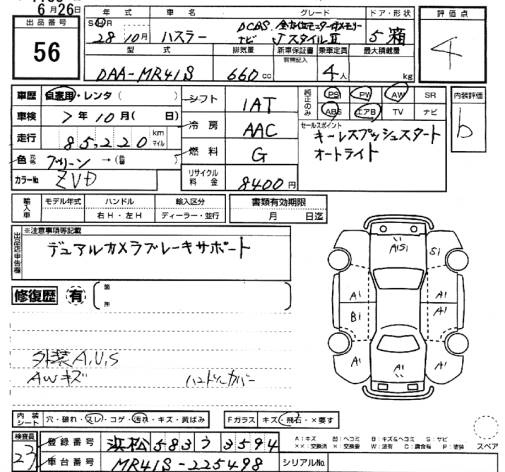 6月26日
出品番号
56
年式 車名 グレード ドア・形状
28年10月 ハスラー JスタイルⅡ 5 箱
型式 排気量 新車保証書 乗車定員 最大積載量
DAA-MR41S 660cc 4人 kg
評価点
4
車歴 自家用・レンタ( ) シフト 1AT
車検 7年10月(日) 冷房 AAC
走行 85,220 km マイル 燃料 G
色 グリーン →(色)
カラーNo ZVD リサイクル料金 8400円
純正のみ PS PW AW SR
ABS エアB TV ナビ
セールスポイント
キーレスプッシュスタート
オートライト
内装評価
b
輸入車 モデル年式 ハンドル 輸入区分 書類有効期限
右H・左H ディーラー・並行 月 日迄
出品店申告欄 ※注意事項等記載
デュアルカメラブレーキサポート
修復歴 有 箇所
外装A.U.S
AWキズ ハンドルカバー
A1S1
A1 S1
A1 A1
B1
A1 A1
内装シート 穴・破れ・スレ・コゲ・汚れ・キズ・黄ばみ Fガラス キズ・飛石・×要す
A:キズ B:キズ&ヘコミ S:サビ
スペア
検査員 23
登録番号 浜松 583 う 3594
車台番号 MR41S-225498 シリアルNo.